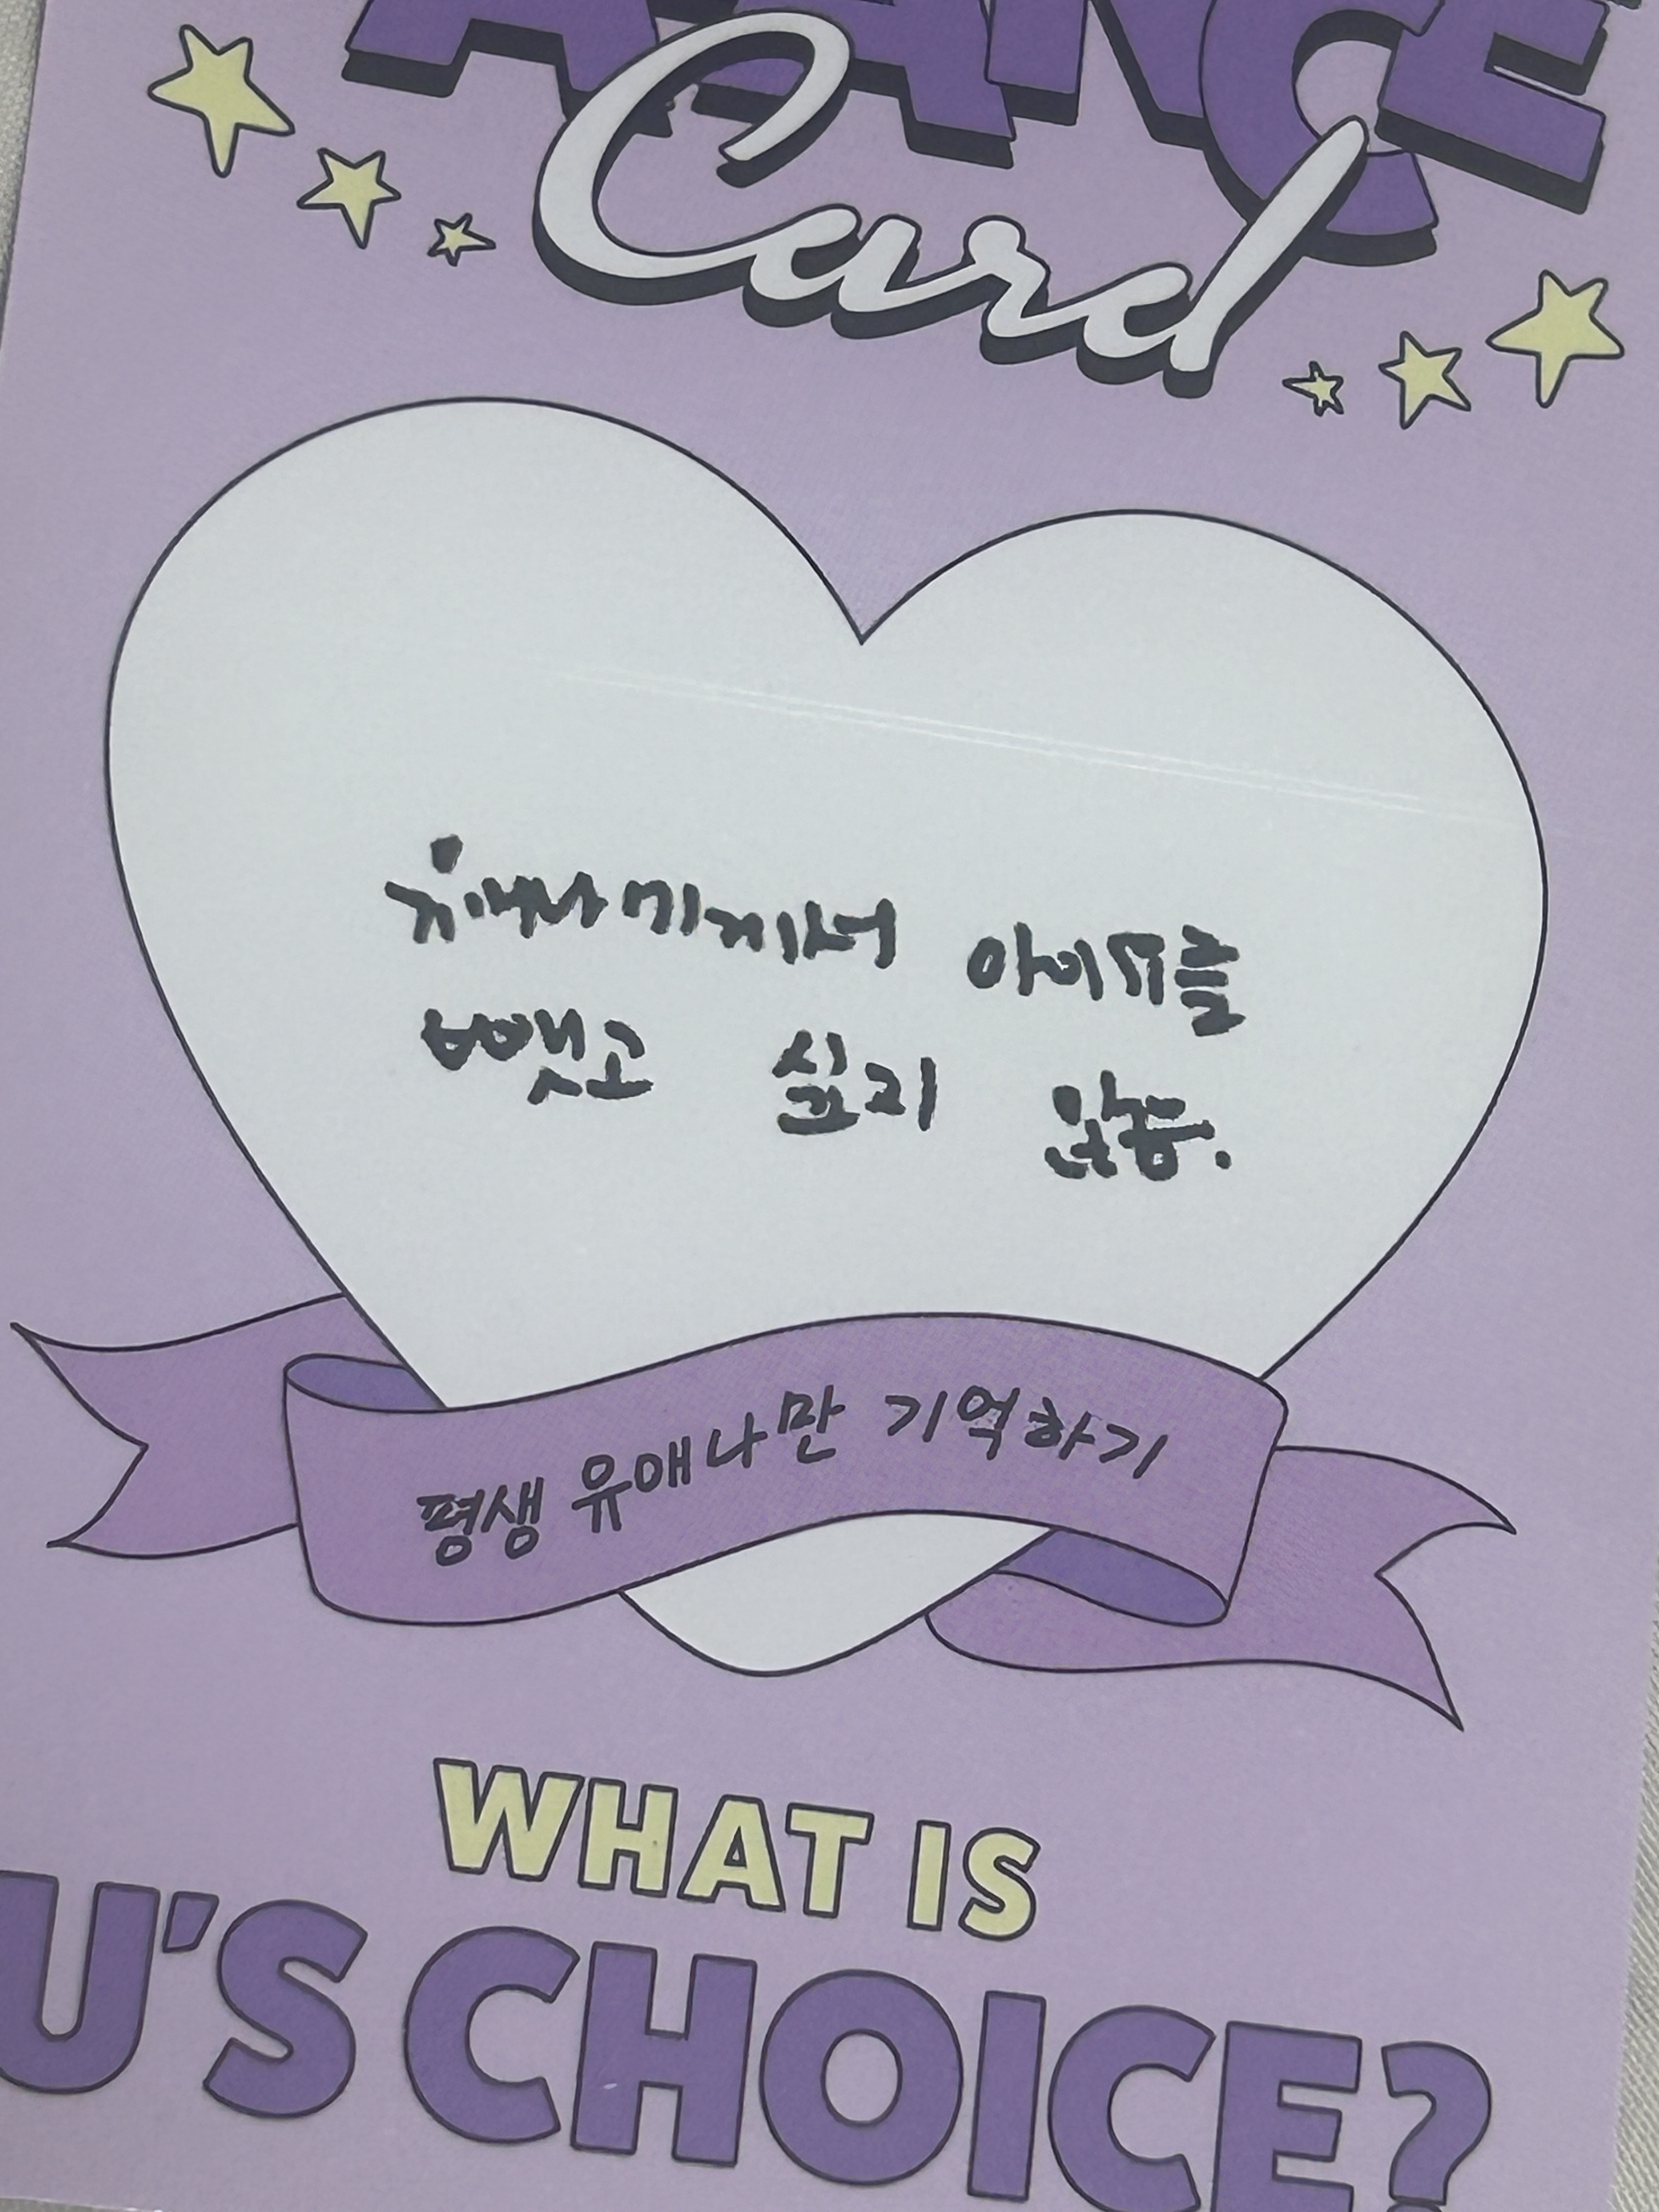 Card
유애나에게서 아이유를
뺏고 싶지 않음.
평생 유애나만 기억하기
WHAT IS
U'S CHOICE?